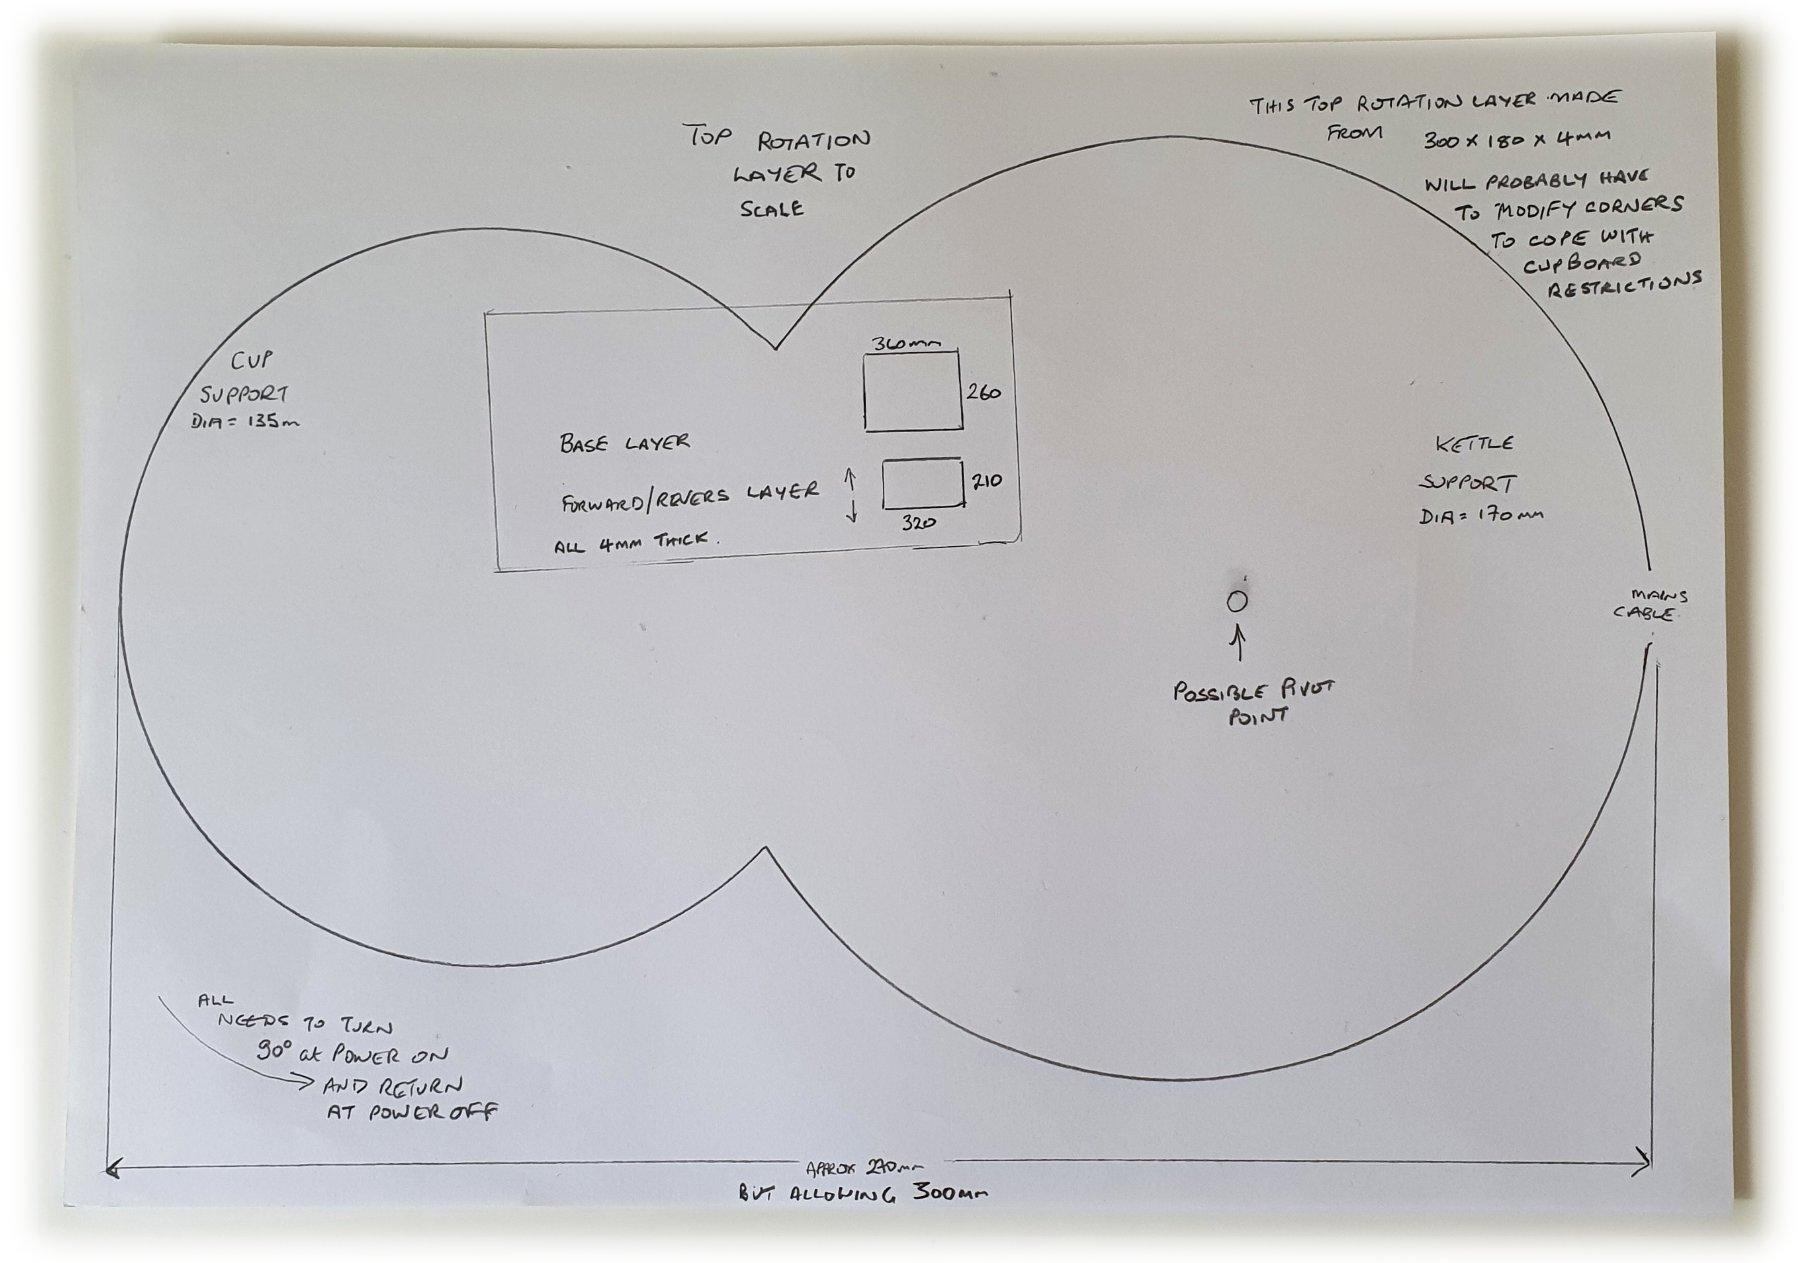 THIS TOP ROTATION LAYER MADE
FROM 300 x 180 x 4mm
WILL PROBABLY HAVE
TO MODIFY CORNERS
TO COPE WITH
CUPBOARD
RESTRICTIONS
TOP ROTATION
LAYER TO
SCALE
CUP
SUPPORT
DIA = 135m
360mm
260
BASE LAYER
FORWARD/REVERS LAYER
210
320
ALL 4MM THICK.
KETTLE
SUPPORT
DIA = 170mm
MAINS
CABLE
POSSIBLE PIVOT
POINT
ALL
NEEDS TO TURN
90° at POWER ON
AND RETURN
AT POWER OFF
APPROX 270mm
BUT ALLOWING 300mm